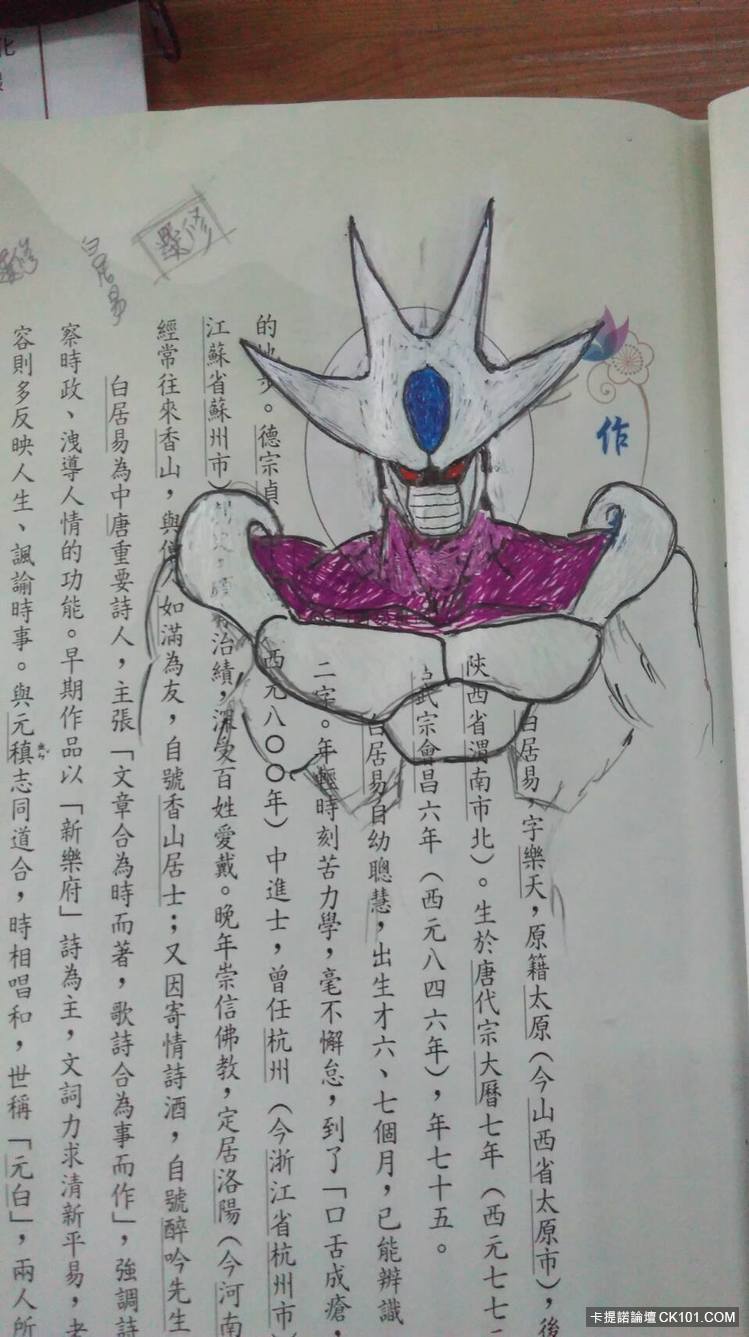 作
白居易，字樂天，原籍太原（今山西省太原市），後
陝西省渭南市北）。生於唐代宗大曆七年（西元七七二
武宗會昌六年（西元八四六年），年七十五。
白居易自幼聰慧，出生才六、七個月，已能辨識
二字。年輕時刻苦力學，毫不懈怠，到了「口舌成瘡，
的地步。德宗貞
西元八〇〇年）中進士，曾任杭州（今浙江省杭州市）
江蘇省蘇州市）
治績，深受百姓愛戴。晚年崇信佛教，定居洛陽（今河南
經常往來香山，與僧人如滿為友，自號香山居士；又因寄情詩酒，自號醉吟先生
白居易為中唐重要詩人，主張「文章合為時而著，歌詩合為事而作」，強調詩
察時政、洩導人情的功能。早期作品以「新樂府」詩為主，文詞力求清新平易，老
容則多反映人生、諷諭時事。與元稹志同道合，時相唱和，世稱「元白」，兩人所
白居易
卡提諾論壇 CK101.COM